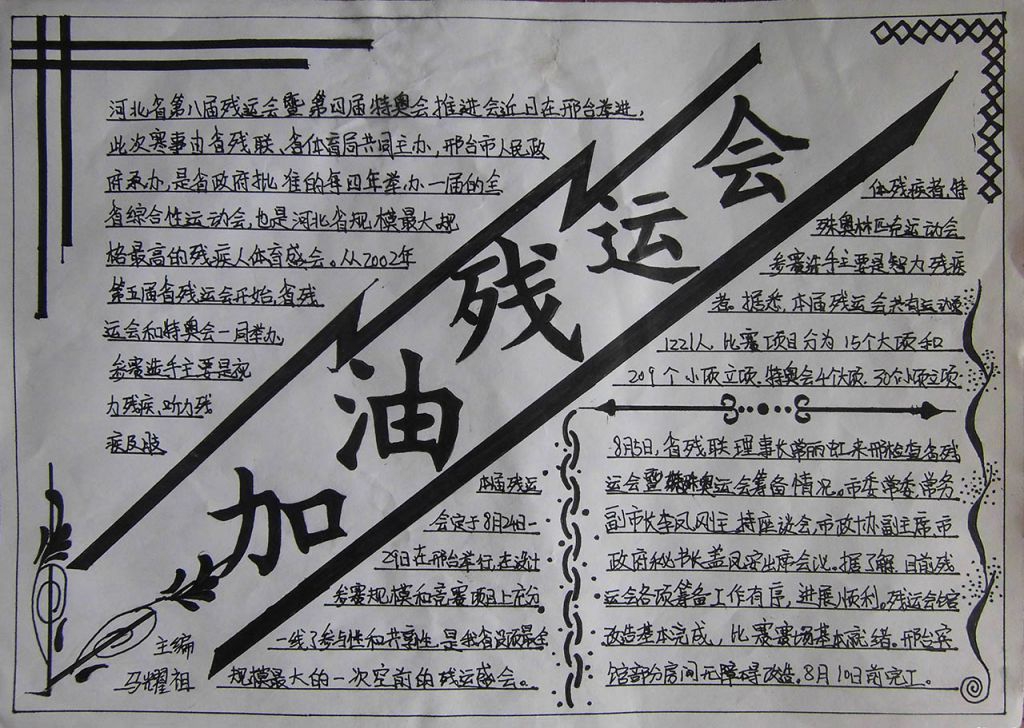 加油残运会
河北省第八届残运会暨第四届特奥会推进会近日在邢台举进,
此次赛事由省残联、省体育局共同主办,邢台市人民政
府承办,是省政府批准的每四年举办一届的全
省综合性运动会,也是河北省规模最大规
格最高的残疾人体育盛会。从2002年
第五届省残运会开始,省残
运会和特奥会一同举办,
参赛选手主要是视
力残疾、听力残
疾及肢
体残疾者,特
殊奥林匹克运动会
参赛选手主要是智力残疾
者。据悉,本届残运会共有运动员
1221人,比赛项目分为15个大项和
209个小项立项,特奥会4个大项,30个小项立项
本届残运
会定于8月24日—
29日在邢台举行,在设计
参赛规模和竞赛项目上充分
一线了参与性和共享性,是我省设项最全
规模最大的一次空前的残运盛会。
8月5日,省残联理事长常丽虹来邢检查省残
运会暨特殊奥运会筹备情况。市委常委,常务
副市长李凤刚主持座谈会,市政协副主席,市
政府秘书长盖凤安出席会议。据了解,目前残
运会各项筹备工作有序,进展顺利。残运会馆
改造基本完成,比赛赛场基本就绪。邢台宾
馆部分房间无障碍改造,8月10日前完工。
主编
马耀祖